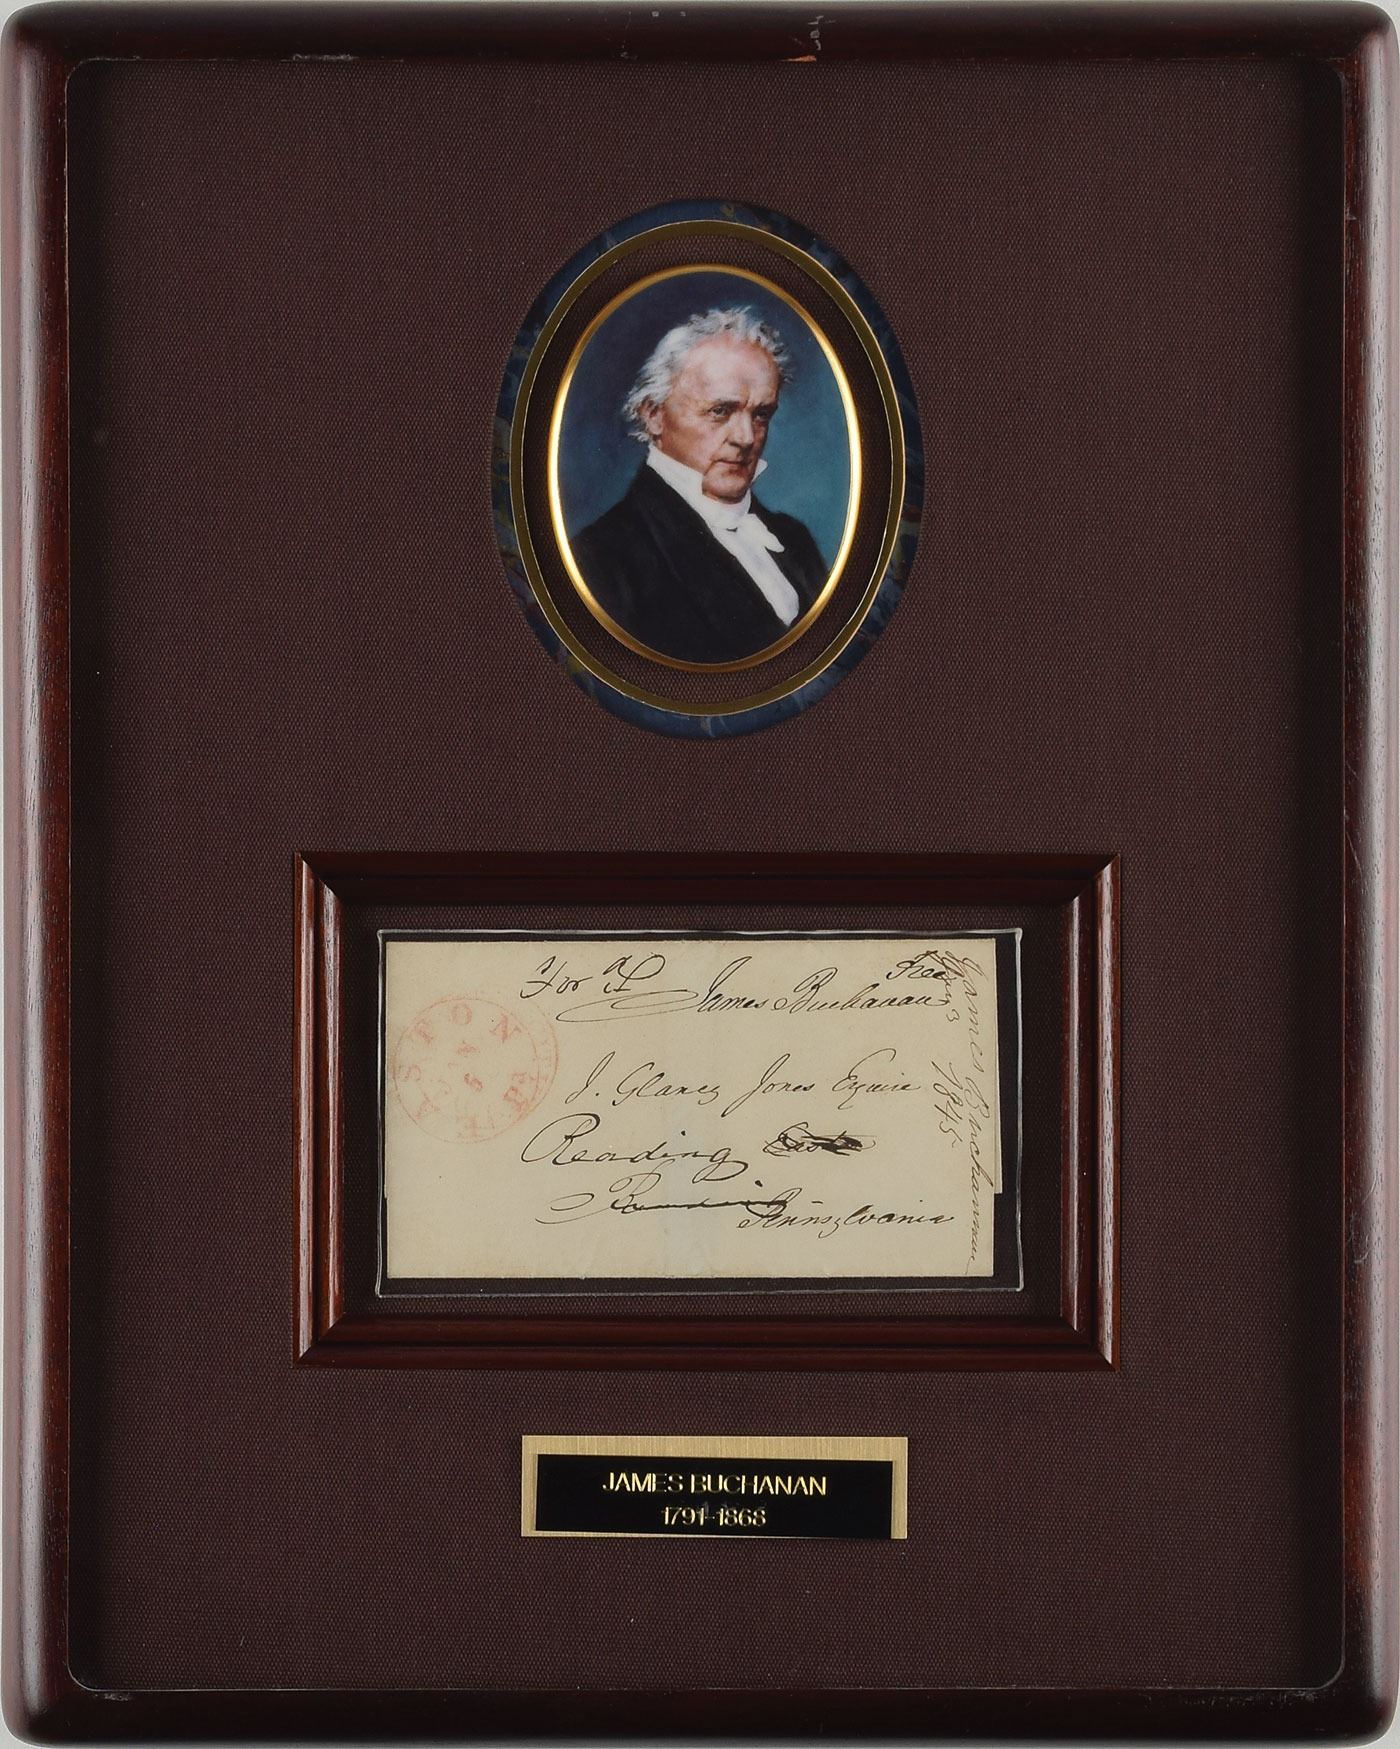 For
James Buchanan
Free
J. Glancy Jones Esquire
Reading
Pennsylvania
James Buchanan
1845
EASTON Pa
JAMES BUCHANAN
1791-1868